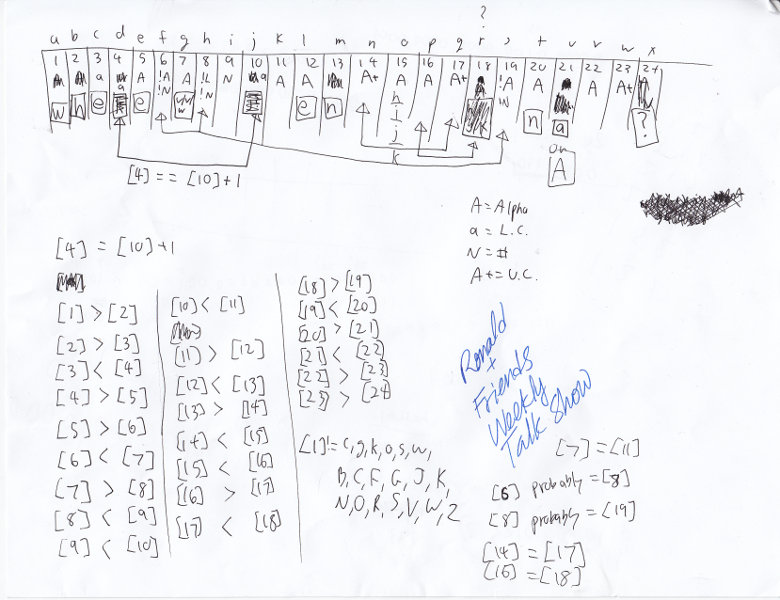 ?
a b c d e f g h i j k l m n o p q r s t u v w x
1 2 3 4 5 6 7 8 9 10 11 12 13 14 15 16 17 18 19 20 21 22 23 24
a A !A A !L N a A A A+ A A A+ !A A A A+
a !N !N !N
w h e e w e n h n a ?
i
j or
k A
[4] == [10]+1
A = Alpha
a = L.C.
N = #
A+ = U.C.
[4] = [10]+1
[1] > [2]
[2] > [3]
[3] < [4]
[4] > [5]
[5] > [6]
[6] < [7]
[7] > [8]
[8] < [9]
[9] < [10]
[10] < [11]
[11] > [12]
[12] < [13]
[13] > [14]
[14] < [15]
[15] < [16]
[16] > [17]
[17] < [18]
[18] > [19]
[19] < [20]
[20] > [21]
[21] < [22]
[22] > [23]
[23] > [24]
[1] != c, g, k, o, s, w,
B, C, F, G, J, K,
N, O, R, S, V, W, Z
Ronald
+
Friends
Weekly
Talk Show
[7] = [11]
[6] probably = [8]
[8] probably = [19]
[14] = [17]
[16] = [18]